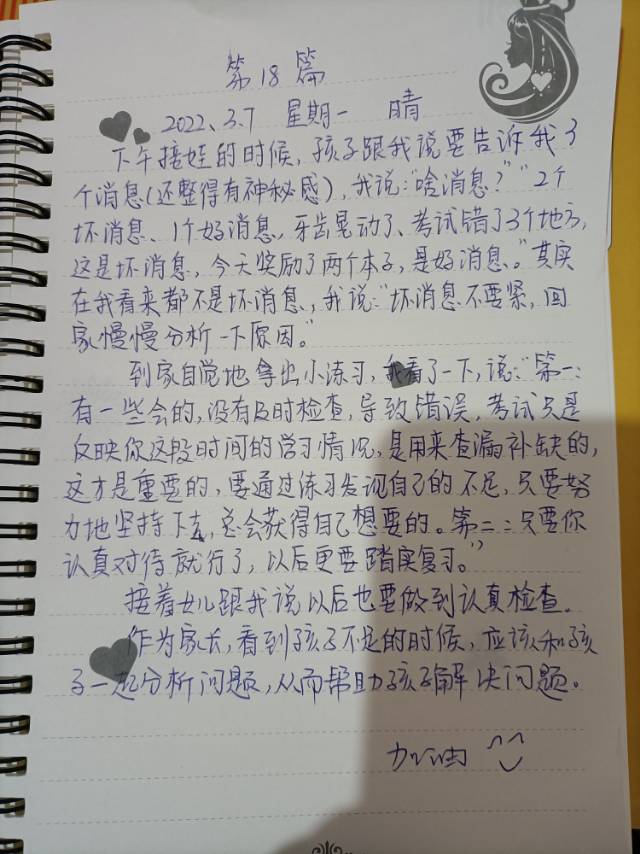 第18篇
2022、3.7 星期一 晴
下午接娃的时候，孩子跟我说要告诉我3
个消息(还整得有神秘感)，我说："啥消息？""2个
坏消息、1个好消息，牙齿晃动了、考试错了3个地方，
这是坏消息，今天奖励了两个本子，是好消息。"其实
在我看来都不是坏消息，我说："坏消息不要紧，回
家慢慢分析一下原因。"
到家自觉地拿出小练习，我看了一下，说："第一：
有一些会的，没有及时检查，导致错误，考试只是
反映你这段时间的学习情况，是用来查漏补缺的，
这才是重要的，要通过练习发现自己的不足，只要努
力地坚持下去，总会获得自己想要的。第二：只要你
认真对待就行了，以后更要踏实复习。"
接着女儿跟我说以后也要做到认真检查。
作为家长，看到孩子不足的时候，应该和孩
子一起分析问题，从而帮助孩子解决问题。
加油